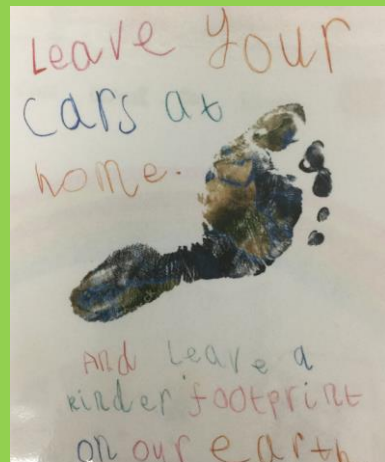 Leave Your
cars at
home.
And Leave a
kinder footprint
on our earth